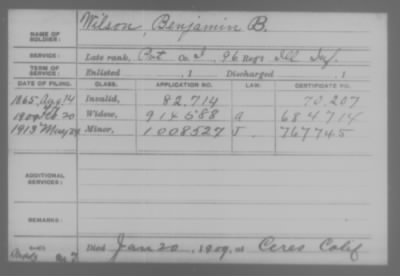 NAME OF SOLDIER: Wilson, Benjamin B.
SERVICE: Late rank, Pvt Co. I, 96 Reg't Ill Inf.
TERM OF SERVICE: Enlisted , 1 Discharged , 1
DATE OF FILING. CLASS. APPLICATION NO. LAW. CERTIFICATE NO.
1865 14 Invalid, 82,714 70,207
1909 20 Widow, 914588 a 684714
1913 May 29 Minor, 1008527 J 767745
ADDITIONAL SERVICES:
REMARKS:
Died Jan 20, 1909, at Ceres Calif